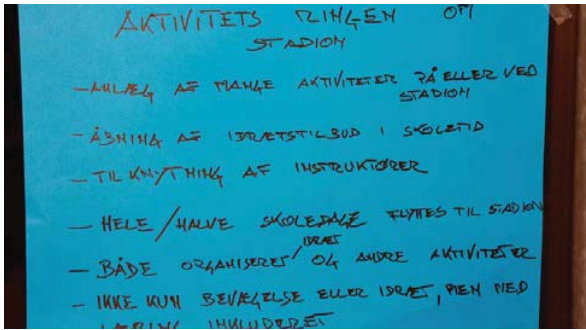 AKTIVITETS RINGEN OM
STADION
- ANLÆG AF MANGE AKTIVITETER PÅ ELLER VED
STADION
- ÅBNING AF IDRÆTSTILBUD I SKOLETID
- TILKNYTNING AF INSTRUKTØRER
- HELE/HALVE SKOLEDAGE FLYTTES TIL STADION
- BÅDE ORGANISERET/IDRÆT OG ANDRE AKTIVITETER
- IKKE KUN BEVÆGELSE ELLER IDRÆT, MEN MED
LÆRING INKLUDERET